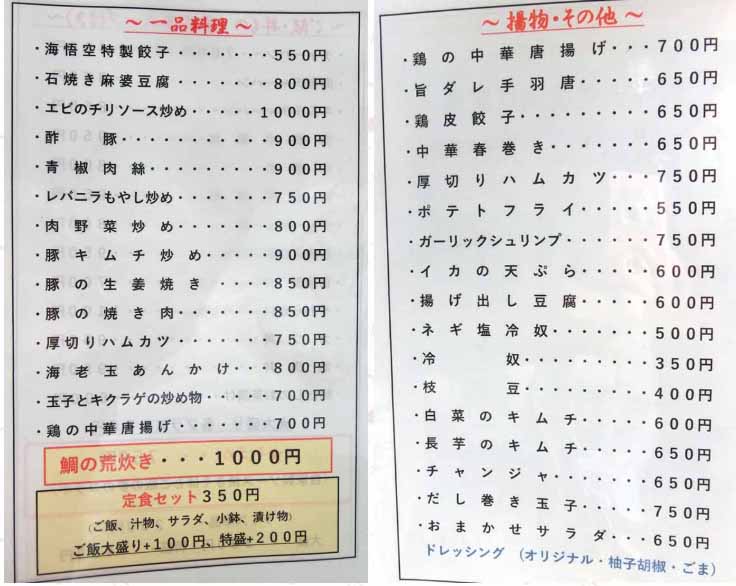 ～ 一品料理 ～
・海悟空特製餃子・・・・・・・550円
・石焼き麻婆豆腐・・・・・・・800円
・エビのチリソース炒め・・・・1000円
・酢豚・・・・・・・・・・・900円
・青椒肉絲・・・・・・・・・900円
・レバニラもやし炒め・・・・・・750円
・肉野菜炒め・・・・・・・800円
・豚キムチ炒め・・・・・・900円
・豚の生姜焼き・・・・・850円
・豚の焼き肉・・・・・・・850円
・厚切りハムカツ・・・・・・・750円
・海老玉あんかけ・・・・800円
・玉子とキクラゲの炒め物・・・・700円
・鶏の中華唐揚げ・・・・・・・700円
鯛の荒炊き・・・1000円
定食セット350円
(ご飯、汁物、サラダ、小鉢、漬け物)
ご飯大盛り+100円、特盛+200円
～ 揚物・その他 ～
・鶏の中華唐揚げ・・・700円
・旨ダレ手羽唐・・・・・650円
・鶏皮餃子・・・・・・・・・650円
・中華春巻き・・・・・・・650円
・厚切りハムカツ・・・・750円
・ポテトフライ・・・・・550円
・ガーリックシュリンプ・・・・・・750円
・イカの天ぷら・・・・・600円
・揚げ出し豆腐・・・・・600円
・ネギ塩冷奴・・・・・・・500円
・冷奴・・・・・・・・350円
・枝豆・・・・・・・・400円
・白菜のキムチ・・・・・600円
・長芋のキムチ・・・・・650円
・チャンジャ・・・・・・650円
・だし巻き玉子・・・・・750円
・おまかせサラダ・・・・650円
ドレッシング （オリジナル・柚子胡椒・ごま）